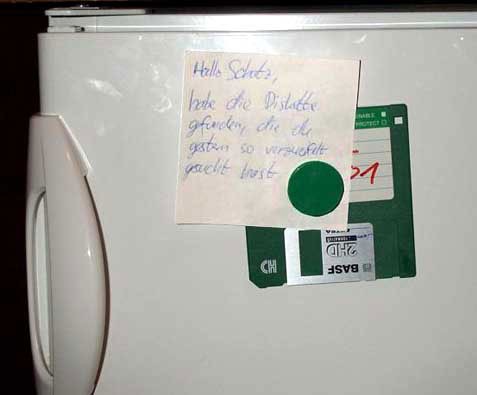 Hallo Schatz,
habe die Diskette
gefunden, die du
gestern so verzweifelt
gesucht hast
ENABLE
PROTECT
1
BASF
2HD
EXTRA
HD